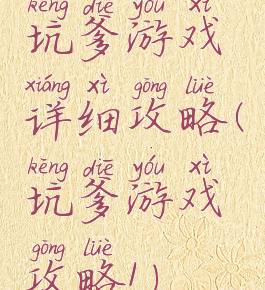 kēng diē yóu xì
坑爹游戏
xiáng xì gōng lüè
详细攻略(
kēng diē yóu xì
坑爹游戏
gōng lüè
攻略!)